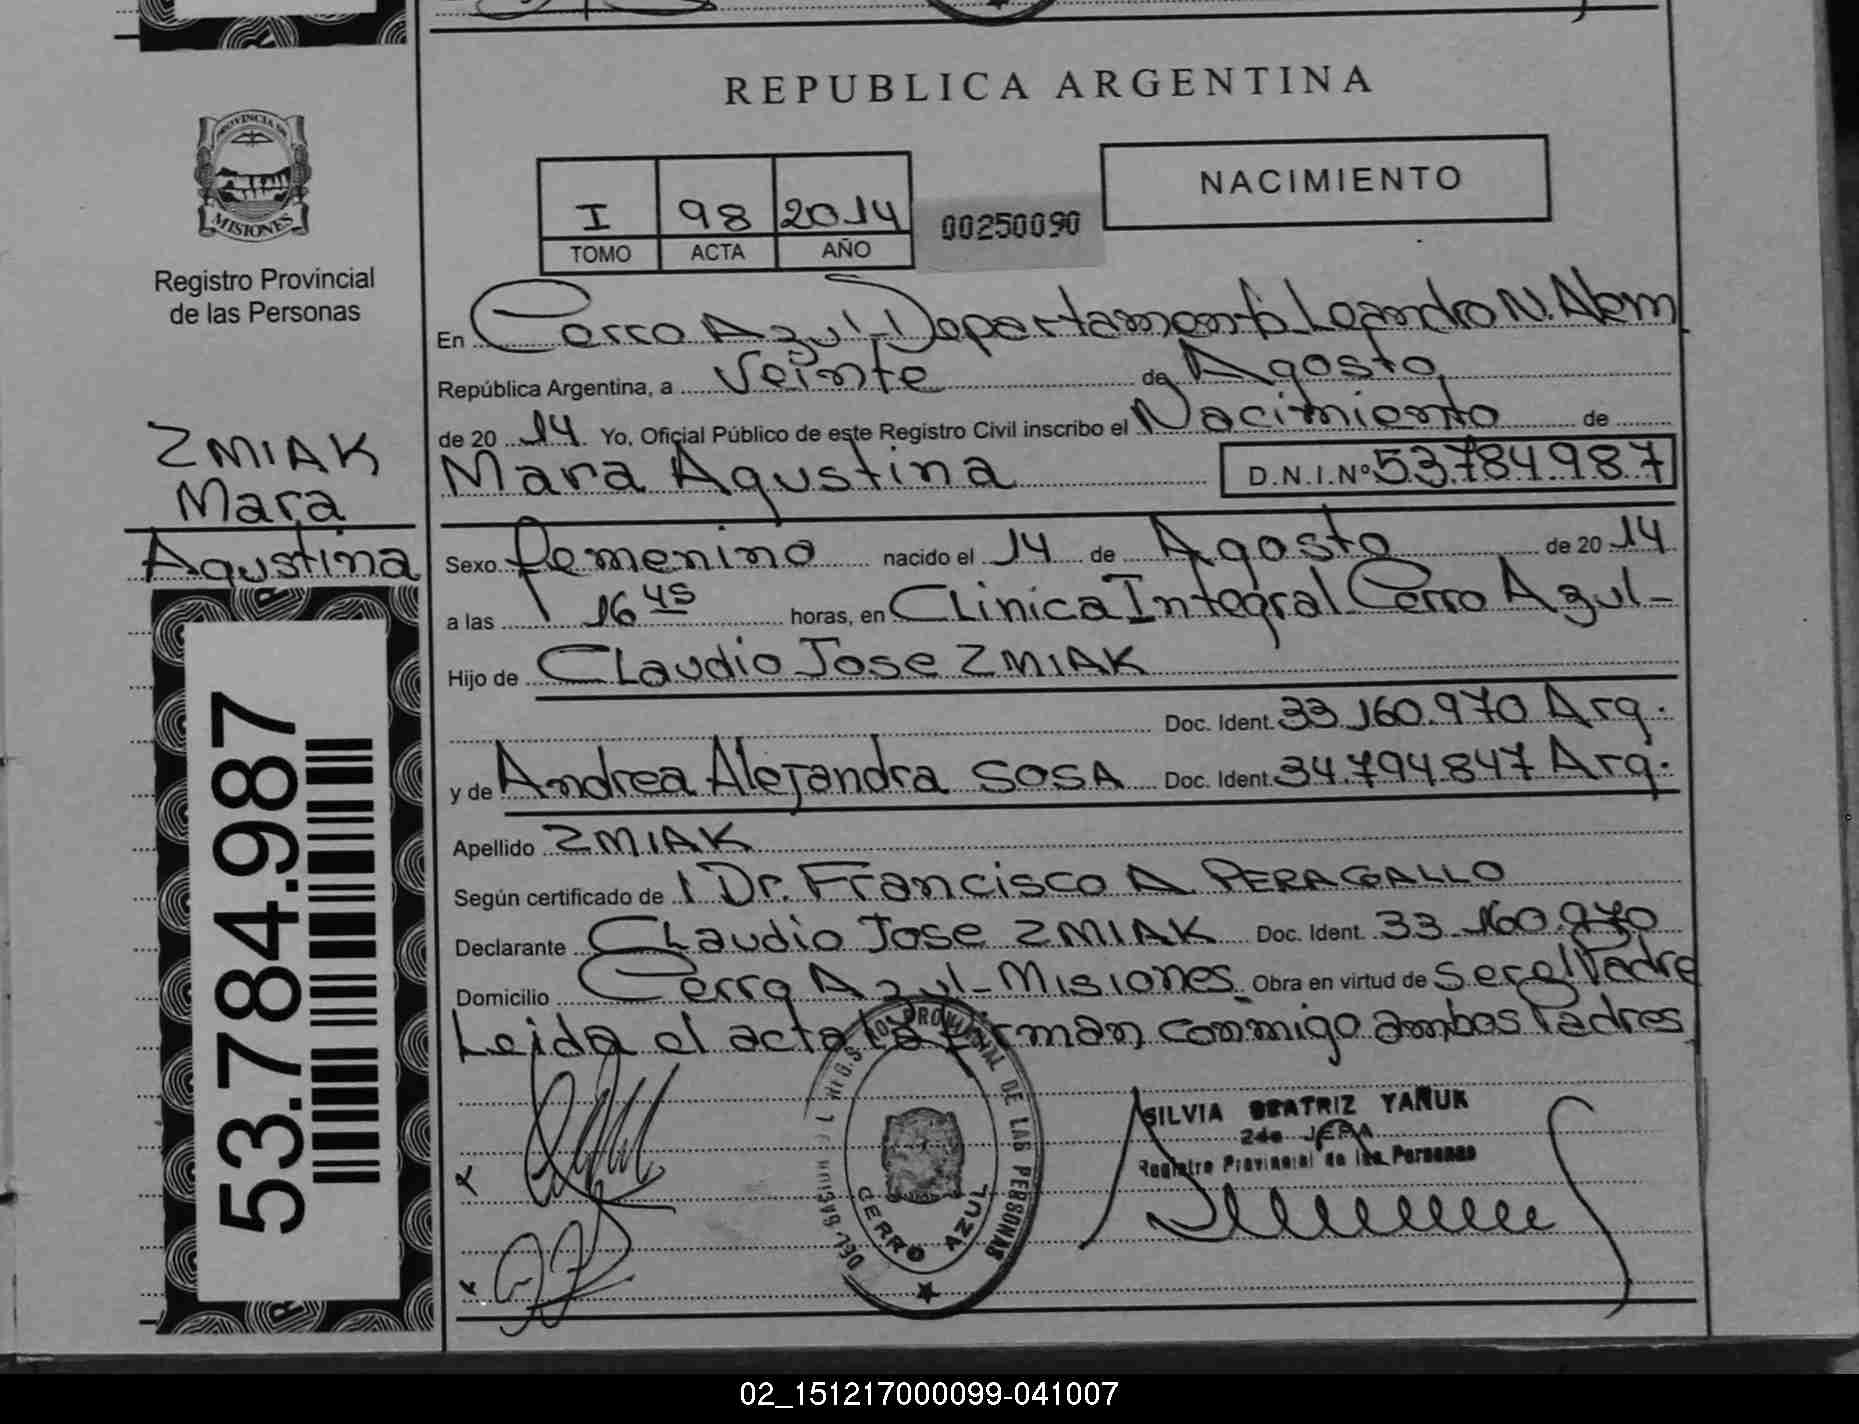 REPUBLICA ARGENTINA
PROVINCIA DE
MISIONES
Registro Provincial
de las Personas
NACIMIENTO
I 98 2014
TOMO ACTA AÑO
00250090
ZMIAK
Mara
Agustina
53.784.987
En Cerro Azul-Departamento Leandro N. Alem
República Argentina, a Veinte de Agosto
de 20 14 Yo, Oficial Público de este Registro Civil inscribo el Nacimiento de
Mara Agustina D.N.I.Nº 53.784.987
Sexo femenino nacido el 14 de Agosto de 20 14
a las 16 45 horas, en Clinica Integral Cerro Azul-
Hijo de Claudio Jose ZMIAK
Doc. Ident. 33.160.970 Arg.
y de Andrea Alejandra SOSA Doc. Ident. 34.794.847 Arg.
Apellido ZMIAK
Según certificado de Dr. Francisco A. PERAGALLO
Declarante Claudio Jose ZMIAK Doc. Ident. 33.160.970
Domicilio Cerro Azul-Misiones Obra en virtud de Ser el Padre
Leida el acta la Firman conmigo ambos Padres
PROVINCIAL DE LAS PERSONAS
CERRO AZUL
SILVIA BEATRIZ YAÑUK
2da JEFA
Registro Provincial de las Personas
02_151217000099-041007